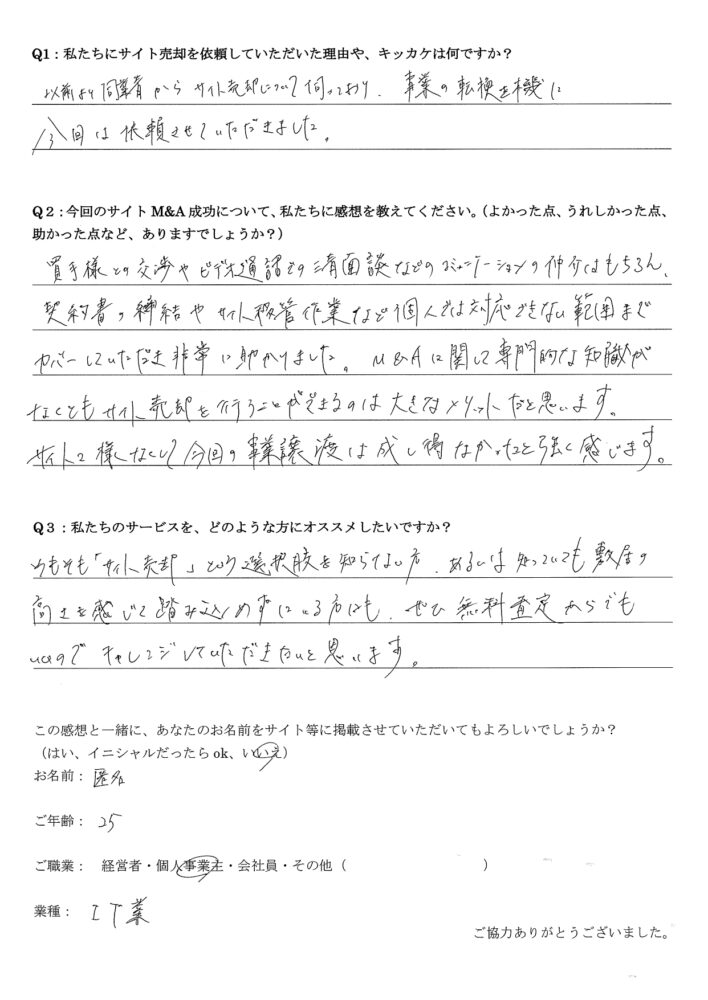 Q1：私たちにサイト売却を依頼していただいた理由や、キッカケは何ですか？
以前より同業者からサイト売却について伺っており、事業の転換を機に
今回は依頼させていただきました。
Q２：今回のサイト M&A 成功について、私たちに感想を教えてください。（よかった点、うれしかった点、
助かった点など、ありますでしょうか？）
買手様との交渉やビデオ通話での面談などのコミュニケーションの仲介はもちろん、
契約書の締結やサイト移管作業など個人では対応できない範囲まで
カバーしていただき非常に助かりました。M&Aに関して専門的な知識が
なくともサイト売却を行うことができるのは大きなメリットだと思います。
サイト 様なくして今回の事業譲渡は成し得なかったと強く感じます。
Q３：私たちのサービスを、どのような方にオススメしたいですか？
そもそも「サイト売却」という選択肢を知らない方、あるいは知っていても敷居の
高さを感じて踏み込めずにいる方にも、ぜひ無料査定からでも
いいのでチャレンジしていただきたいと思います。
この感想と一緒に、あなたのお名前をサイト等に掲載させていただいてもよろしいでしょうか？
（はい、イニシャルだったら ok、いいえ）
お名前： 匿名
ご年齢： 25
ご職業：　経営者・個人事業主・会社員・その他（　　　　　　　　　）
業種： IT業
ご協力ありがとうございました。